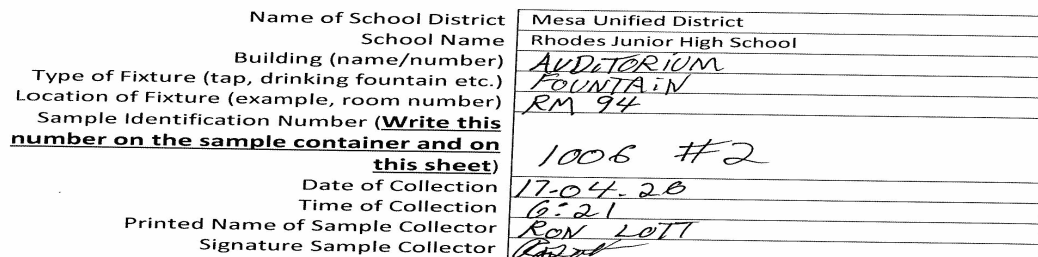 Name of School District Mesa Unified District
School Name Rhodes Junior High School
Building (name/number) AUDiTORiUM
Type of Fixture (tap, drinking fountain etc.) FOUNTAiN
Location of Fixture (example, room number) RM 94
Sample Identification Number (Write this
number on the sample container and on
this sheet) 1006 #2
Date of Collection 17-04-20
Time of Collection 6:21
Printed Name of Sample Collector RON LOTT
Signature Sample Collector